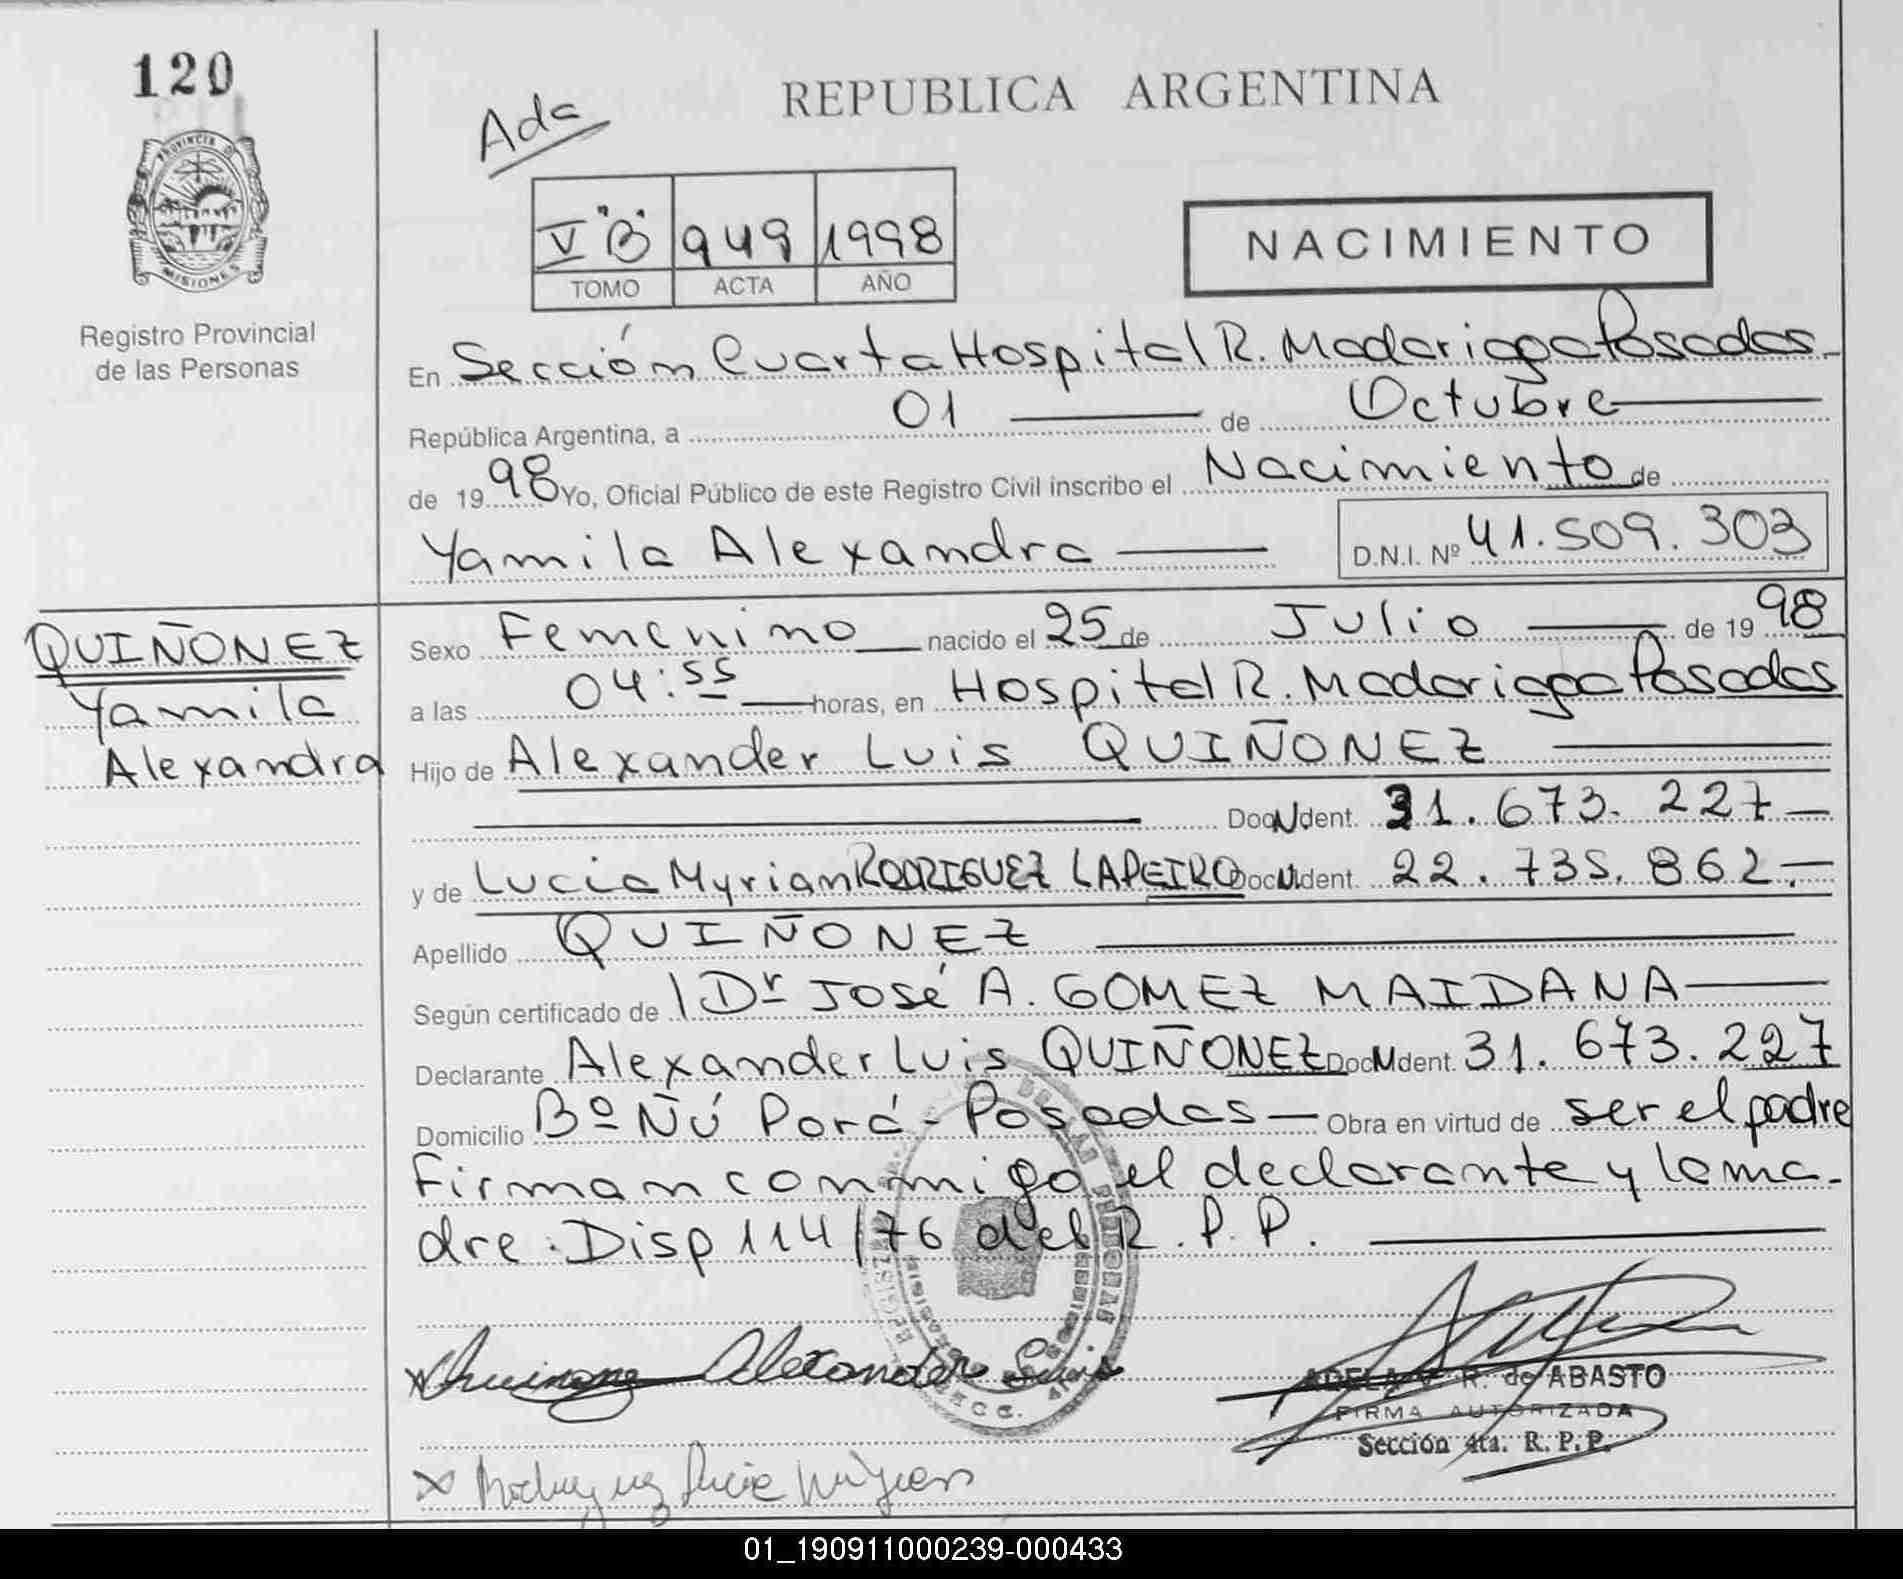 120
REPUBLICA ARGENTINA
Ada
PROVINCIA DE
MISIONES
V "B" 949 1998
TOMO ACTA AÑO
NACIMIENTO
Registro Provincial
de las Personas
En Sección Cuarta Hospital R. Madariaga Posadas
República Argentina, a 01 de Octubre
de 1998 Yo, Oficial Público de este Registro Civil inscribo el Nacimiento de
Yamila Alexandra D.N.I. Nº 41.509.303
QUIÑONEZ
Yamila
Alexandra
Sexo Femenino nacido el 25 de Julio de 1998
a las 04:55 horas, en Hospital R. Madariaga Posadas
Hijo de Alexander Luis QUIÑONEZ
Doc N dent. 31.673.227
y de Lucia Myrian RODRIGUEZ LAPEIRO Doc N dent. 22.735.862.
Apellido QUIÑONEZ
Según certificado de l Dr José A. GOMEZ MAIDANA
Declarante Alexander Luis QUIÑONEZ Doc N dent. 31.673.227
Domicilio Bº Ñú Porá - Posadas Obra en virtud de ser el padre
Firman conmigo el declarante y la ma-
dre. Disp 114/76 del R.P.P.
x Quinonez Alexander Luis
ADELA R. de ABASTO
FIRMA AUTORIZADA
Sección 4ta. R.P.P.
x Rodriguez Lucia Myrian
01_190911000239-000433